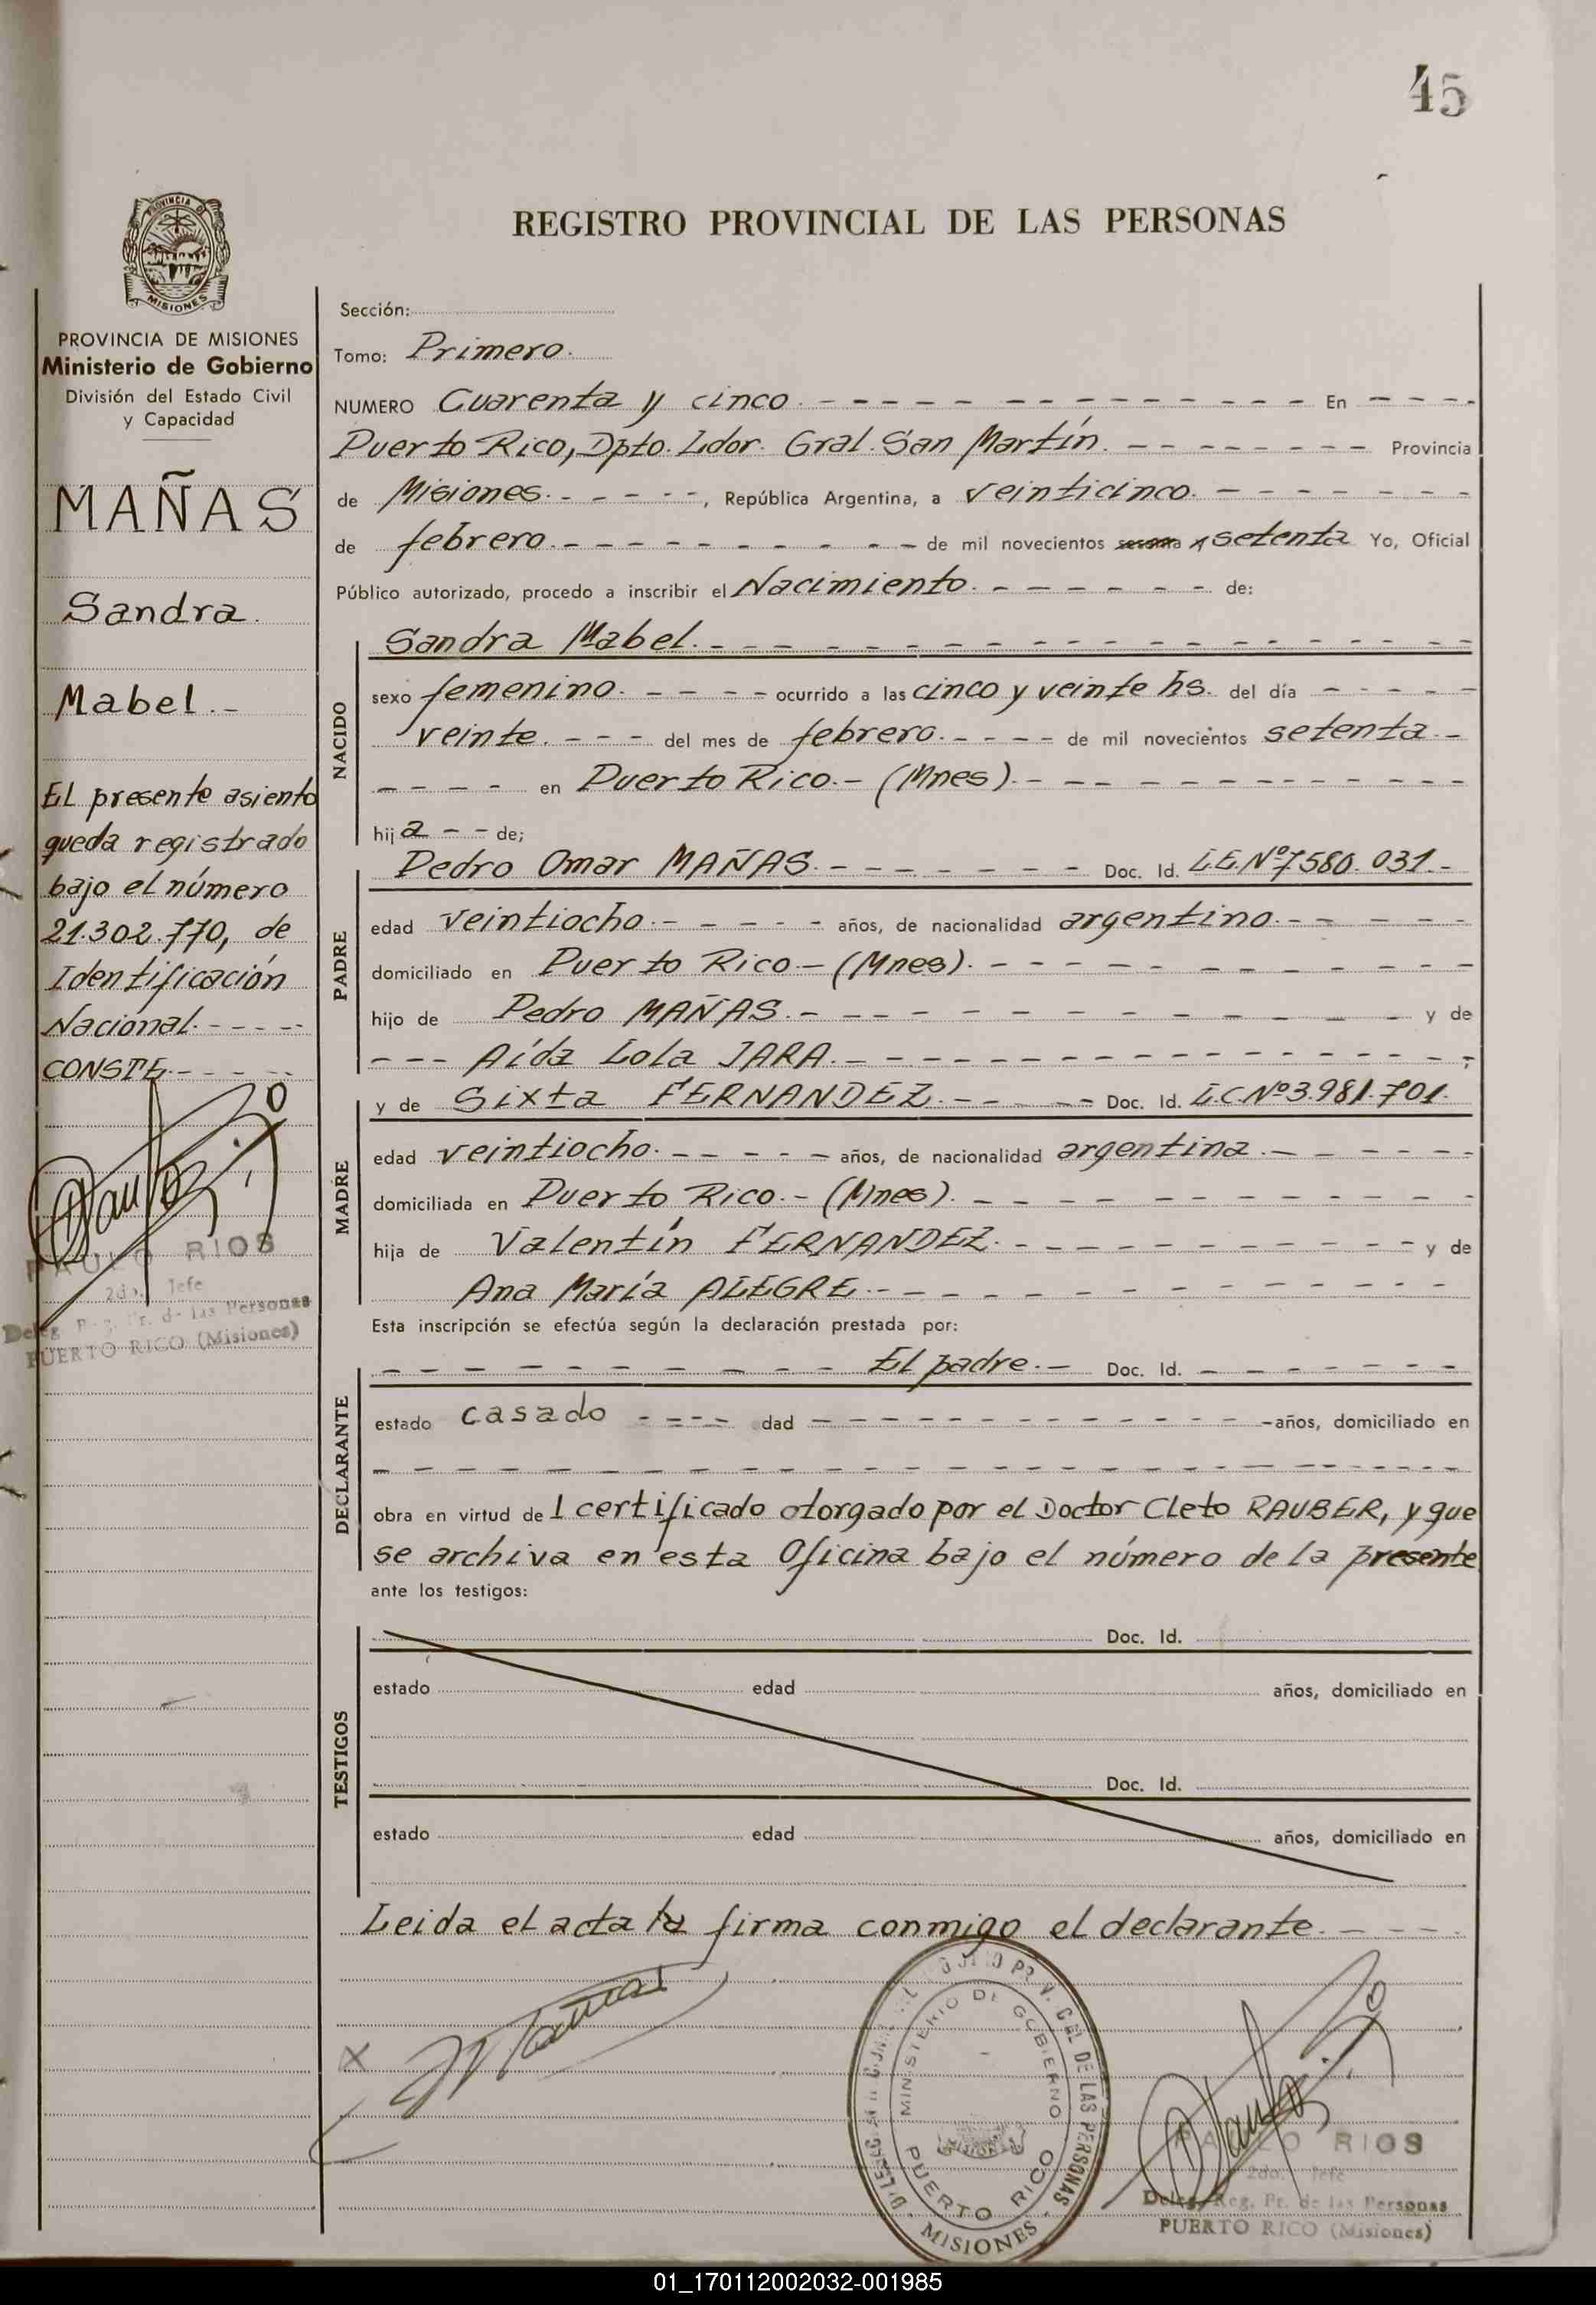 45
REGISTRO PROVINCIAL DE LAS PERSONAS
PROVINCIA DE
MISIONES
PROVINCIA DE MISIONES
Ministerio de Gobierno
División del Estado Civil
y Capacidad
MAÑAS
Sandra.
Mabel.-
El presente asiento
queda registrado
bajo el número
21.302.770, de
Identificación
Nacional.- - - --
CONSTE.- - - --
PAULO RIOS
2do. Jefe
Deleg. Reg. Pr. de las Personas
PUERTO RICO (Misiones)
Sección:
Tomo: Primero.
NUMERO Cuarenta y cinco.- - - - - - - - - - - - - En - - - -
Puerto Rico, Dpto. Ldor. Gral. San Martín.- - - - - - - - Provincia
de Misiones.- - - - -, República Argentina, a veinticinco.- - - - - - -
de febrero.- - - - - - - - - - de mil novecientos sesenta y setenta Yo, Oficial
Público autorizado, procedo a inscribir el Nacimiento.- - - - - - de:
Sandra Mabel.- - - - - - - - - - - - - - - - - -
NACIDO
sexo femenino.- - - - ocurrido a las cinco y veinte hs. del día - - - - -
veinte.- - - - del mes de febrero.- - - - - de mil novecientos setenta.-
- - - - en Puerto Rico.- (Mnes).- - - - - - - - - - - -
hija - - de;
PADRE
Pedro Omar MAÑAS.- - - - - - - Doc. Id. L.E.Nº7580.031.-
edad veintiocho.- - - - - años, de nacionalidad argentino.- - - - - -
domiciliado en Puerto Rico.- (Mnes).- - - - - - - - - - -
hijo de Pedro MAÑAS.- - - - - - - - - - - - - y de
- - - Aída Lola JARA.- - - - - - - - - - - - - - - - ;
MADRE
y de Sixta FERNANDEZ.- - - - - Doc. Id. L.C.Nº3.981.701.
edad veintiocho.- - - - - - años, de nacionalidad argentina.- - - - - -
domiciliada en Puerto Rico.- (Mnes).- - - - - - - - - - - -
hija de Valentín FERNANDEZ.- - - - - - - - - - - y de
Ana María ALEGRE.- - - - - - - - - - - - -
Esta inscripción se efectúa según la declaración prestada por:
DECLARANTE
- - - - - - - - - - El padre.- Doc. Id. - - - - - - -
estado casado - - - - dad - - - - - - - - - - - - -años, domiciliado en
- - - - - - - - - - - - - - - - - - - - - - - -
obra en virtud de 1 certificado otorgado por el Doctor Cleto RAUBER, y que
se archiva en esta Oficina bajo el número de la presente
ante los testigos:
TESTIGOS
Doc. Id.
estado edad años, domiciliado en
Doc. Id.
estado edad años, domiciliado en
Leida el acta la firma conmigo el declarante.- - - -
X Mañas
DE LAS PERSONAS
MINISTERIO DE GOBIERNO
MISIONES
PUERTO RICO
- MISIONES -
PAULO RIOS
2do. Jefe
Deleg. Reg. Pr. de las Personas
PUERTO RICO (Misiones)
01_170112002032-001985